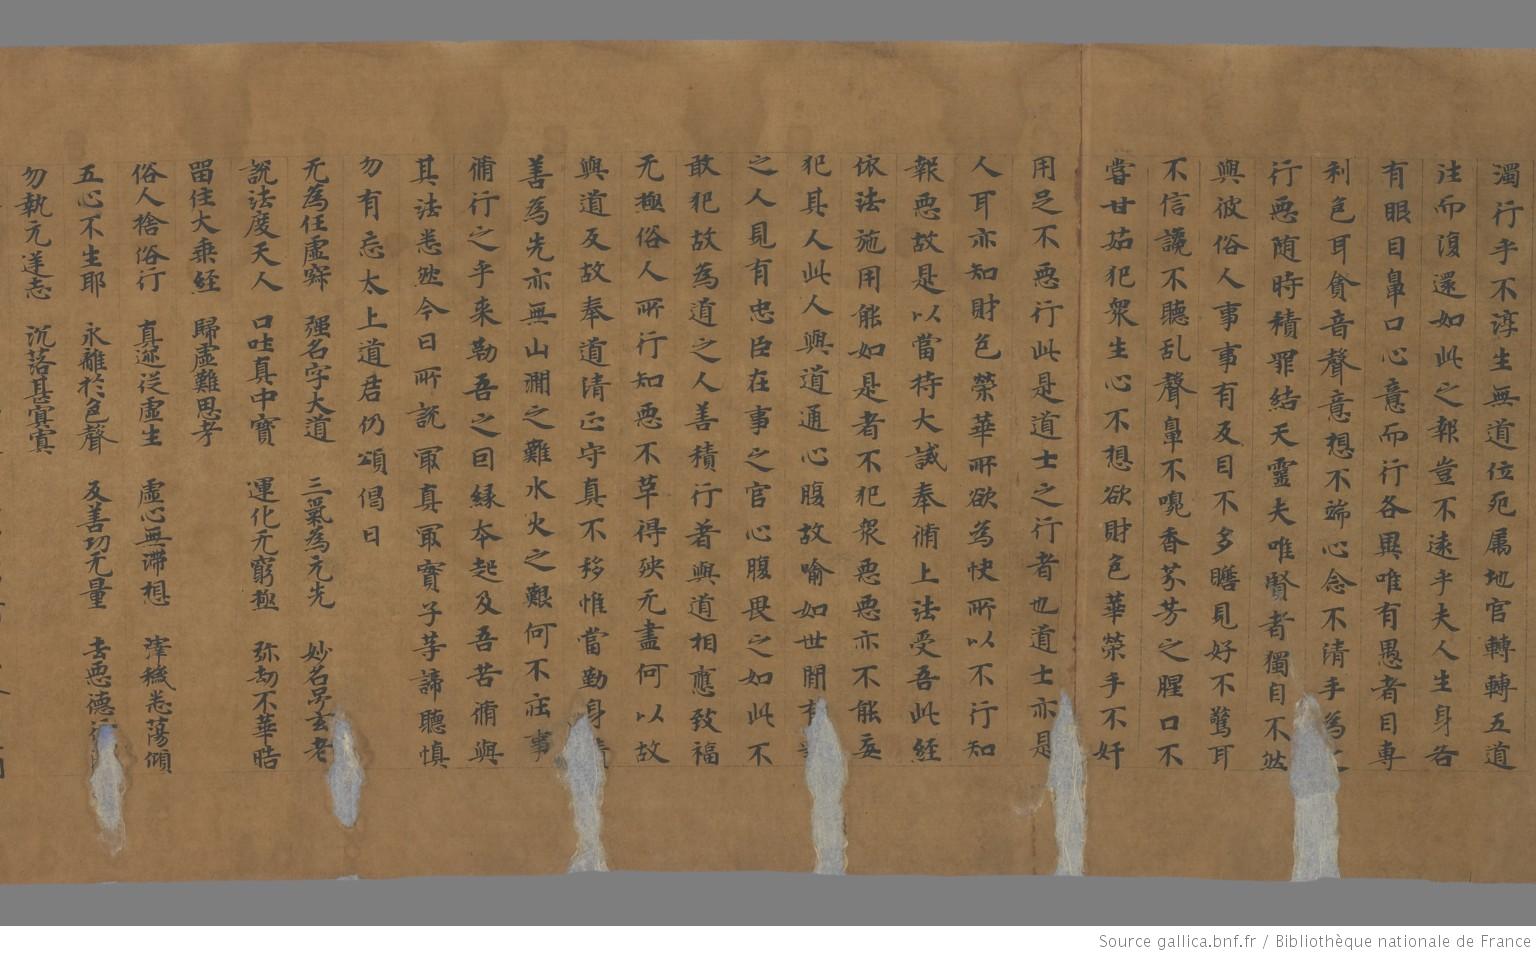 濁行乎不淳生無道位死属地官轉轉五道
注而復還如此之報豈不遠乎夫人生身各
有眼目鼻口心意而行各異唯有愚者目専
利色耳貪音聲意想不端心念不清手為
行悪随時積罪結天靈夫唯賢者獨自不然
興彼俗人事事有反目不多瞻見好不驚耳
不信讒不聽乱聲鼻不嗅香芬芳之腥口不
嘗甘茹犯衆生心不想欲財色華榮手不奸
用足不悪行此是道士之行者也道士亦是
人耳亦知財色榮華所欲為快所以不行知
報悪故是以當持大誡奉脩上法受吾此経
依法施用能如是者不犯衆悪悪亦不能妄
犯其人此人興道通心腹故喻如世間有
之人見有忠臣在事之官心腹畏之如此不
敢犯故為道之人善積行著與道相應致福
无極俗人所行知悪不草得殃无盡何以故
與道反故奉道清正守真不移惟當勤身
善為先亦無山澗之難水火之艱何不祛事
脩行之乎来勒吾之曰縁夲起及吾苦脩與
其法悉然今日所說冣真冣寳子等諦聽慎
勿有忘太上道君仍頌倡曰
无為任虚寂 强名字大道 三氣為元先 妙名号玄老
說法度天人 口吐真中寳 運化无窮極 弥劫不華晧
留住大乗経 歸虚難思考
俗人捨俗行 真迹従虚生 虚心無滯想 滓穢悉蕩傾
五心不生耶 永離於色聲 及善功无量 去悪德
勿執元迷志 沉落甚冥冥